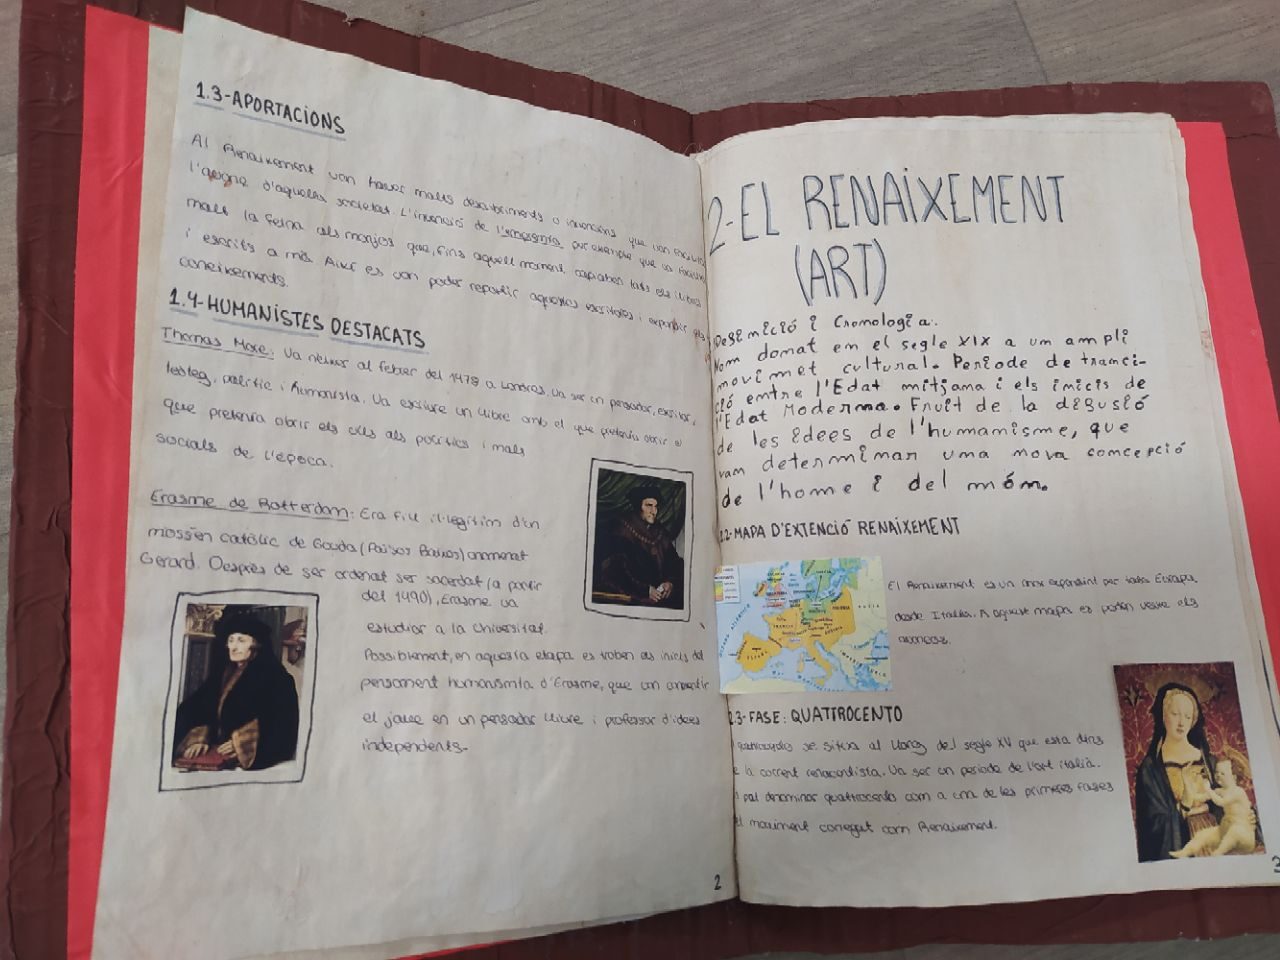 1.3-APORTACIONS
Al Renaixement van haver molts descobriments o invencions que van
l'època d'aquella societat. L'invenció de l'impremta per exemple que va
molt la feina als monjos que, fins aquell moment, copiaben tots els llibres
i escrits a mà. Així es van poder repartir aquestes escritales i expandir els
coneixements.
1.4-HUMANISTES DESTACATS
Thomas More: Va néixer al febrer del 1478 a Londres. Va ser un pensador, escritor,
teòleg, polític i humanista. Va escriure un llibre amb el que pretenia obrir
que pretenia obrir els ulls als polítics i mals
socials de l'època.
Erasme de Rotterdam: Era fill il·legítim d'un
mossèn catòlic de Gouda (Països Baixos) anomenat
Gerard. Després de ser ordenat ser sacerdot (a partir
del 1490), Erasme va
estudiar a la Universitat.
Possiblement, en aquesta etapa es troben els inicis del
pensament humanista d'Erasme, que van convertir
el jove en un pensador lliure i professor d'idees
independents.
2
2-EL RENAiXEMENT
(ART)
Definició i Cronologia.
Nom donat en el segle XIX a um ampli
movimet cultural. Període de tranci-
ció entre l'Edat mitjana i els inicis de
l'Edat Moderna. Fruit de la difusió
de les idees de l'humanisme, que
vam determinar uma nova comcepció
de l'home i del món.
2.2-MAPA D'EXTENCIÓ RENAIXEMENT
El Renaixement es un anar expandint per tota Europa,
desde Itàlia. A aquest mapa es poden veure els
2.3-FASE: QUATTROCENTO
quattrocento se situa al llarg del segle XV que esta dins
la corrent renacentista. Va ser un període de l'art italià.
pot denominar quattrocento com a una de les primeres fases
moviment conegut com Renaixement.
3